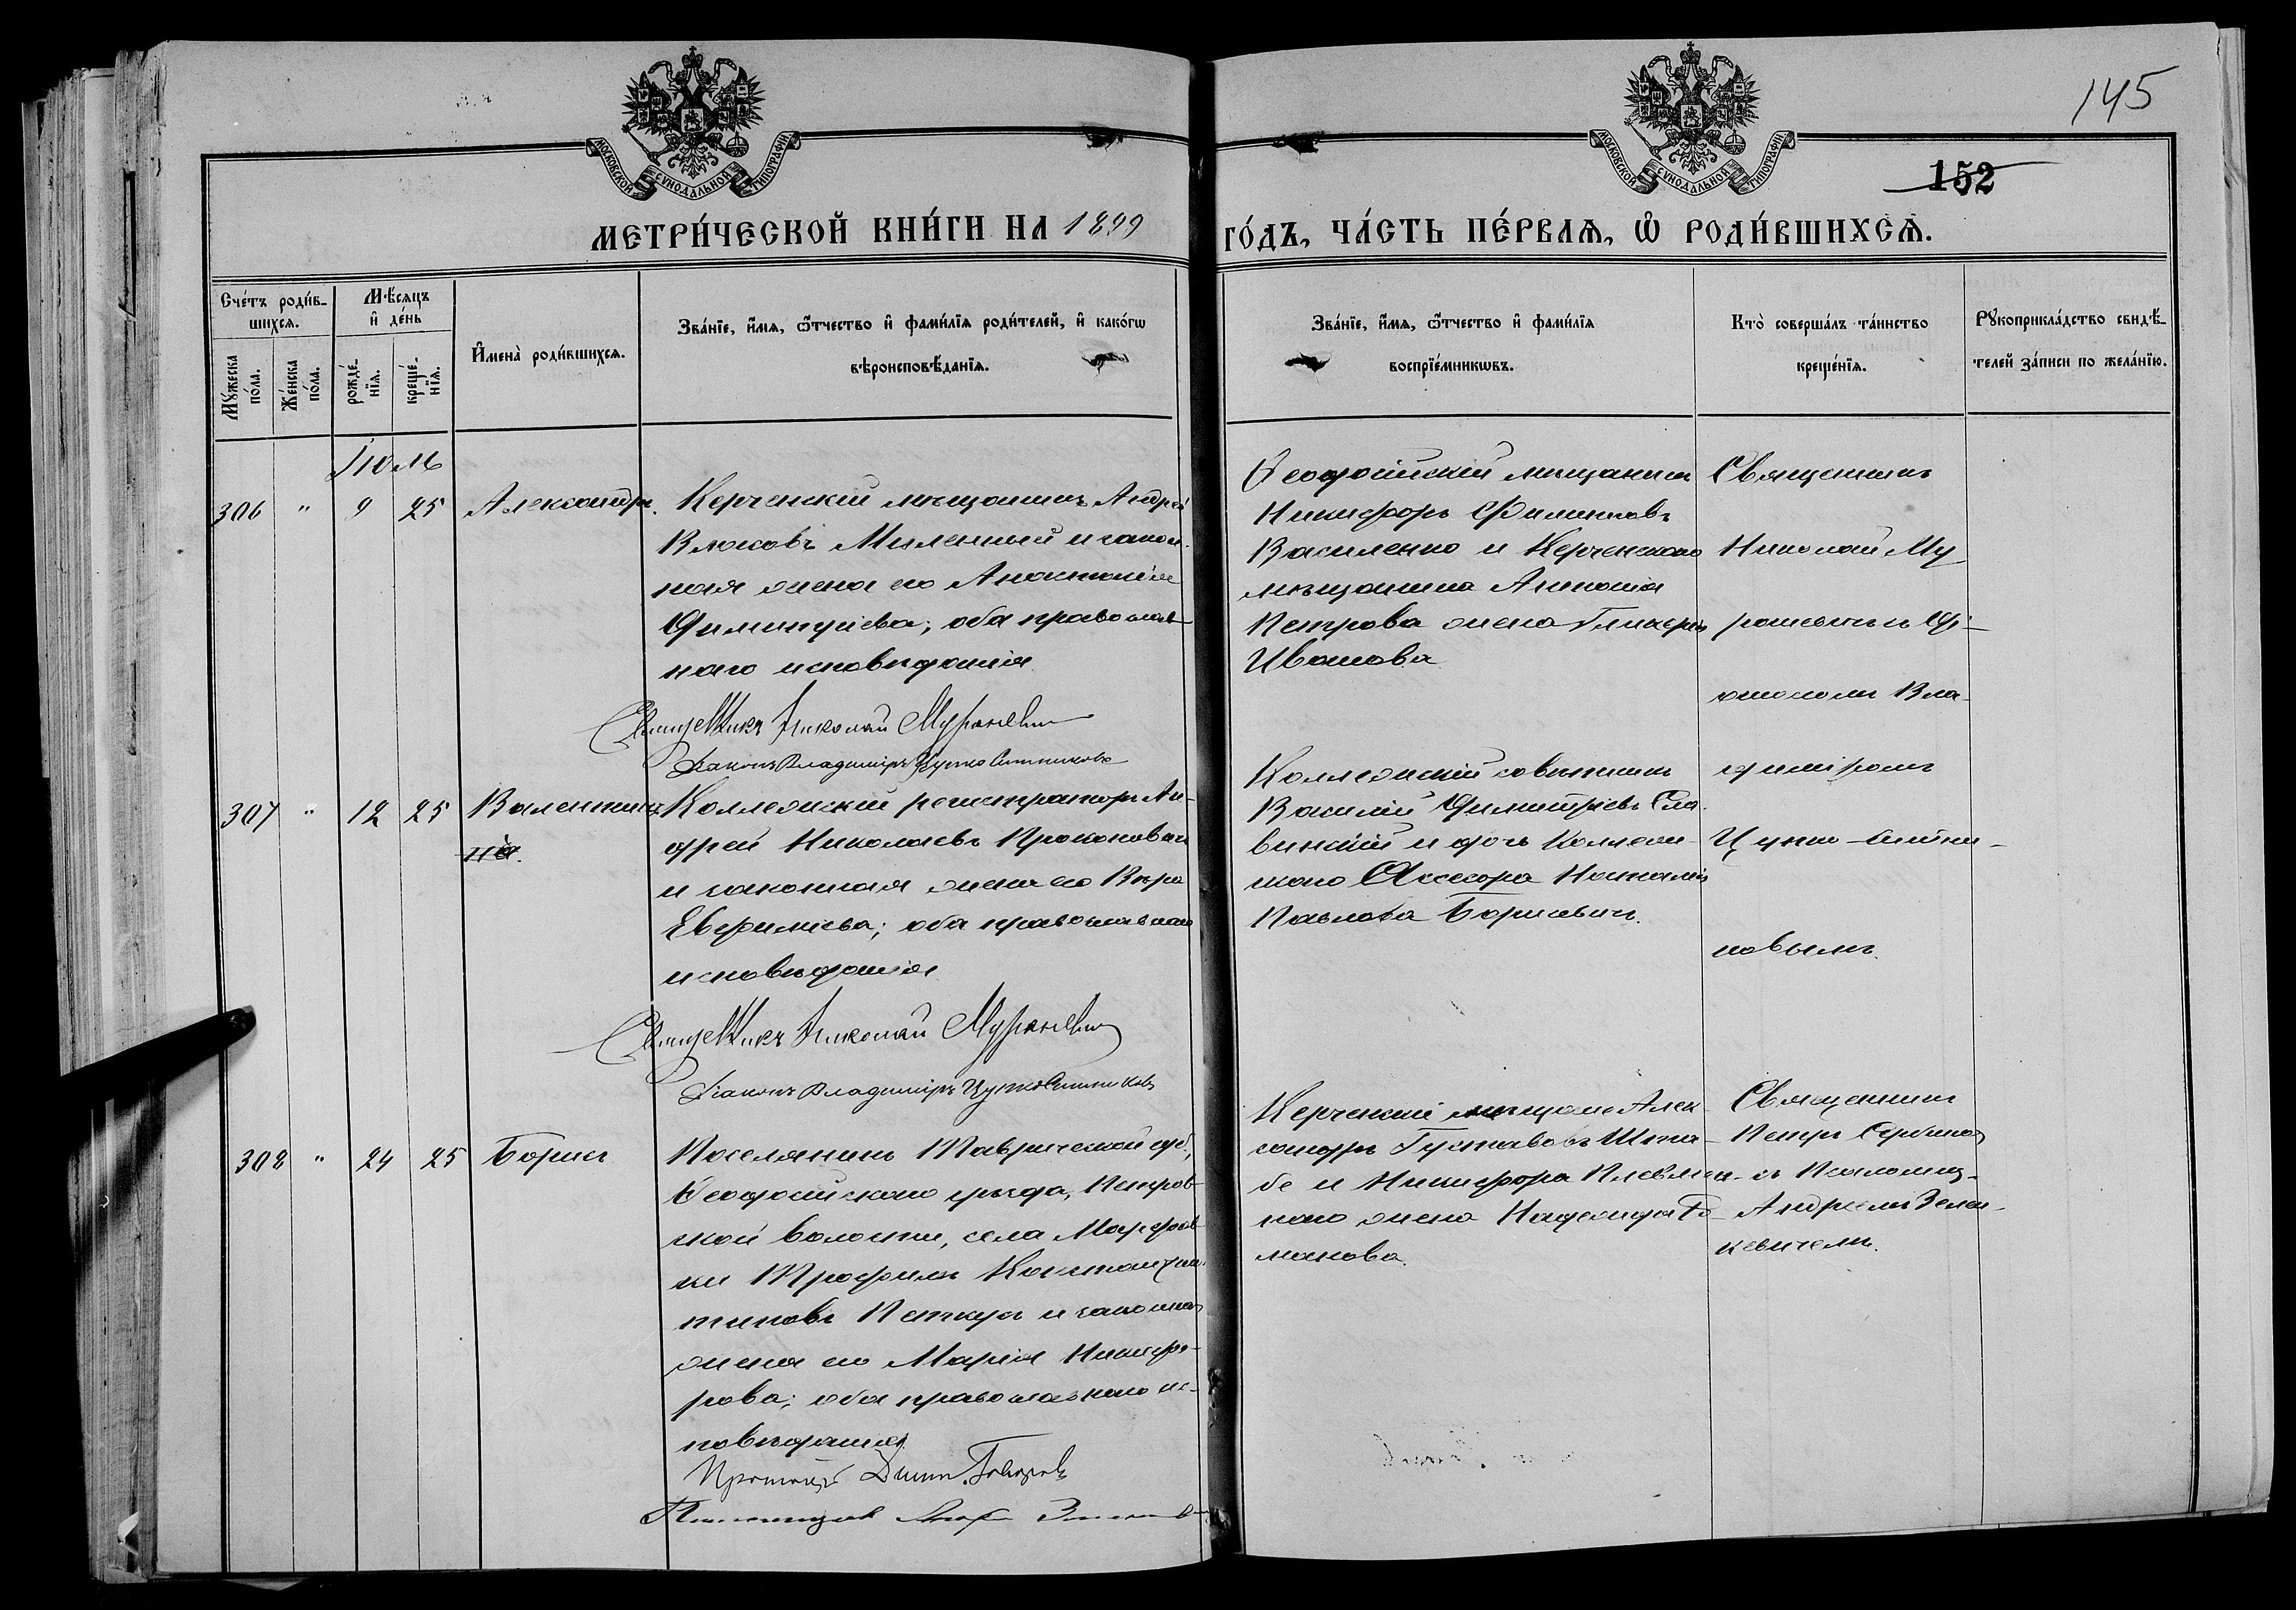 145
МОСКОВСКОЙ СѴНОДАЛЬНОЙ ТИПОГРАФІИ
МОСКОВСКОЙ СѴНОДАЛЬНОЙ ТИПОГРАФІИ
152
МЕТРИ́ЧЕСКОЙ КНИ́ГИ НА 1899
ГО́ДЪ, ЧА́СТЬ ПЕ́РВАЯ, Ѡ РОДИ́ВШИХСЯ.
Сче́тъ роди́в-
шихся.
Му́жеска по́ла.
Же́нска по́ла.
Мѣ́сяцъ
и де́нь
рожде́-
нїя.
креще́-
нїя.
Имена̀ роди́вшихся.
Зва́нїе, и́мя, ѻ҆́тчество и фами́лїя роди́телей, и како́гѡ
вѣроисповѣ́данїя.
Зва́нїе, и́мя, ѻ҆́тчество и фами́лїя
воспрїе́мникѡвъ.
Кто̀ соверша́лъ та́инство
креще́нїя.
Рꙋкоприкла́дство свидѣ́-
телей за́писи по жела́нїю.
Іюль
306 " 9 25 Александръ.
Керченскій мѣщанинъ Андрей
Власовъ Миленный и закон-
ная жена его Анастасія
Димитріева; оба православ-
наго исповѣданія
Священникъ Николай Мураневич
Діаконъ Владиміръ Цупко Ситниковъ
Ѳеодосійскій мѣщанинъ
Никифоръ Филиповъ
Василенко и Керченскаго
мѣщанина Антонія
Петрова жена Гликерія
Иванова
Священникъ
Николай Му
раневичъ съ Ді-
акономъ Вла-
диміромъ
Цупко-Ситни-
ковымъ.
307 " 12 25 Валентинъ
на.
Коллежскій регистраторъ Ан-
дрей Николаевъ Прокоповичъ
и законная жена его Вѣра
Евфиміева; оба православнаго
исповѣданія
Священникъ Николай Мураневич
Діаконъ Владиміръ Цупко Ситниковъ
Коллежскій совѣтникъ
Василій Димитріевъ Сла-
винскій и дочь Коллеж-
скаго Ассесора Наталія
Павлова Борисевичъ.
308 " 24 25 Борисъ
Поселянинъ Таврической губ.,
Ѳеодосійскаго уѣзда, Петров-
ской волости, села Марфов-
ки Трофимъ Констан
тиновъ Петкуръ и законная
жена его Марія Никифо-
рова; оба православнаго ис-
повѣданія
Керченскій мѣщан. Алек-
сандръ Густавовъ Шта-
бе и Никифора Плевлен-
наго жена Надежда Ро-
манова.
Священникъ
Петръ Сербиновъ
съ Псаломщ.
Андреемъ Зелен-
кевичемъ.